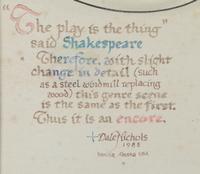 "The play is the thing"
said Shakespeare
Therefore, with slight
change in detail (such
as a steel windmill replacing
wood) this genre scene
is the same as the first.
Thus it is an encore.
Dale Nichols
1983